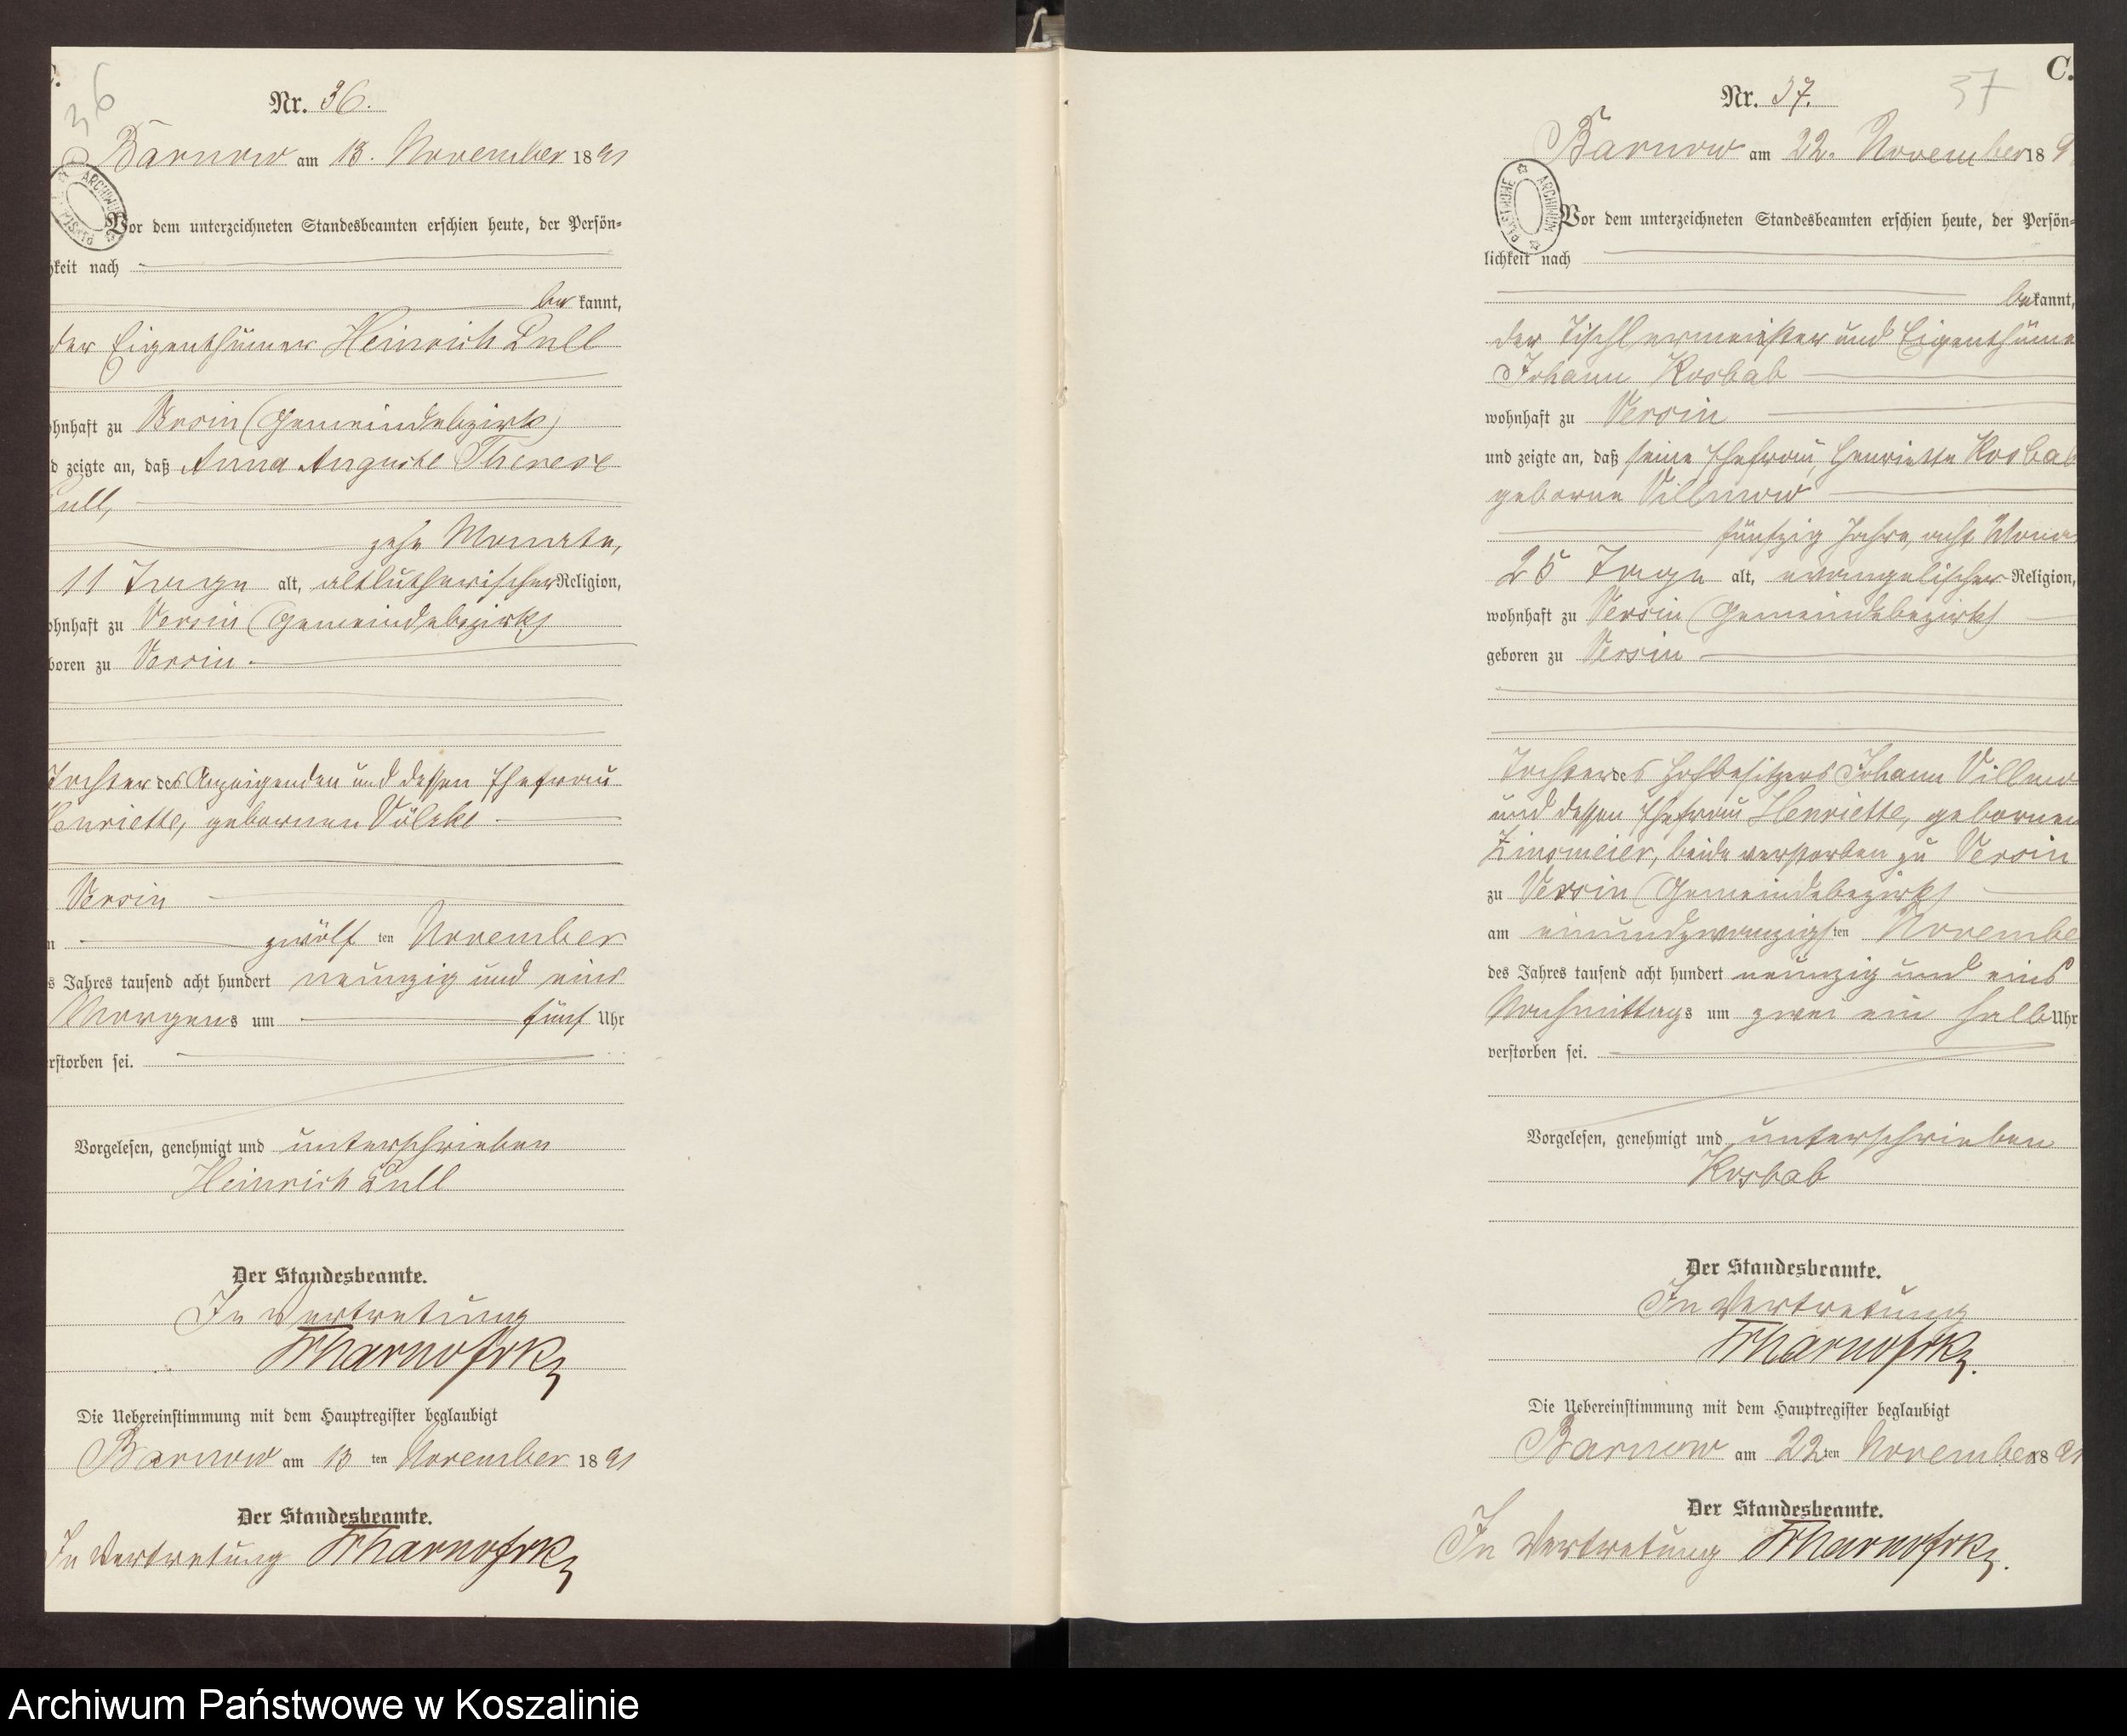 C.
36
Nr. 36.
Barnow am 13. November 1891
ARCHIWUM
Vor dem unterzeichneten Standesbeamten erschien heute, der Persön-
hkeit nach
be kannt,
der Eigenthümer Heinrich Lull
ohnhaft zu Versin (Gemeindebezirk)
d zeigte an, daß Anna Auguste Therese
Lull,
zehn Monate,
11 Tage alt, altlutherischer Religion,
ohnhaft zu Versin (Gemeindebezirk)
boren zu Versin
Tochter des Anzeigenden und dessen Ehefrau
Henriette, gebornen Völzke
Versin
n zwölf ten November
s Jahres tausend acht hundert neunzig und eins
Morgens um fünf Uhr
rstorben sei.
Vorgelesen, genehmigt und unterschrieben
Heinrich Lull
Der Standesbeamte.
In Vertretung
Die Uebereinstimmung mit dem Hauptregister beglaubigt
Barnow am 13 ten November 1891
Der Standesbeamte.
In Vertretung
C.
37
Nr. 37.
Barnow am 22. November 189
ARCHIWUM PAŃSTWOWE
Vor dem unterzeichneten Standesbeamten erschien heute, der Persön-
lichkeit nach
be kannt,
der Tischlermeister und Eigenthüme
Johann Kosbab
wohnhaft zu Versin
und zeigte an, daß seine Ehefrau, Henriette Kosbab
geborne Villnow
fünfzig Jahre, acht Mona
25 Tage alt, evangelischer Religion,
wohnhaft zu Versin (Gemeindebezirk)
geboren zu Versin
Tochter des Hofbesitzers Johann Villno
und dessen Ehefrau Henriette, gebornen
Zinsmeier, beide verstorben zu Versin
zu Versin (Gemeindebezirk)
am einundzwanzigsten Novembe
des Jahres tausend acht hundert neunzig und eins
Nachmittags um zwei ein halb Uhr
verstorben sei.
Vorgelesen, genehmigt und unterschrieben
Kosbab
Der Standesbeamte.
In Vertretung
Die Uebereinstimmung mit dem Hauptregister beglaubigt
Barnow am 22 ten November 1891
Der Standesbeamte.
In Vertretung
Archiwum Państwowe w Koszalinie